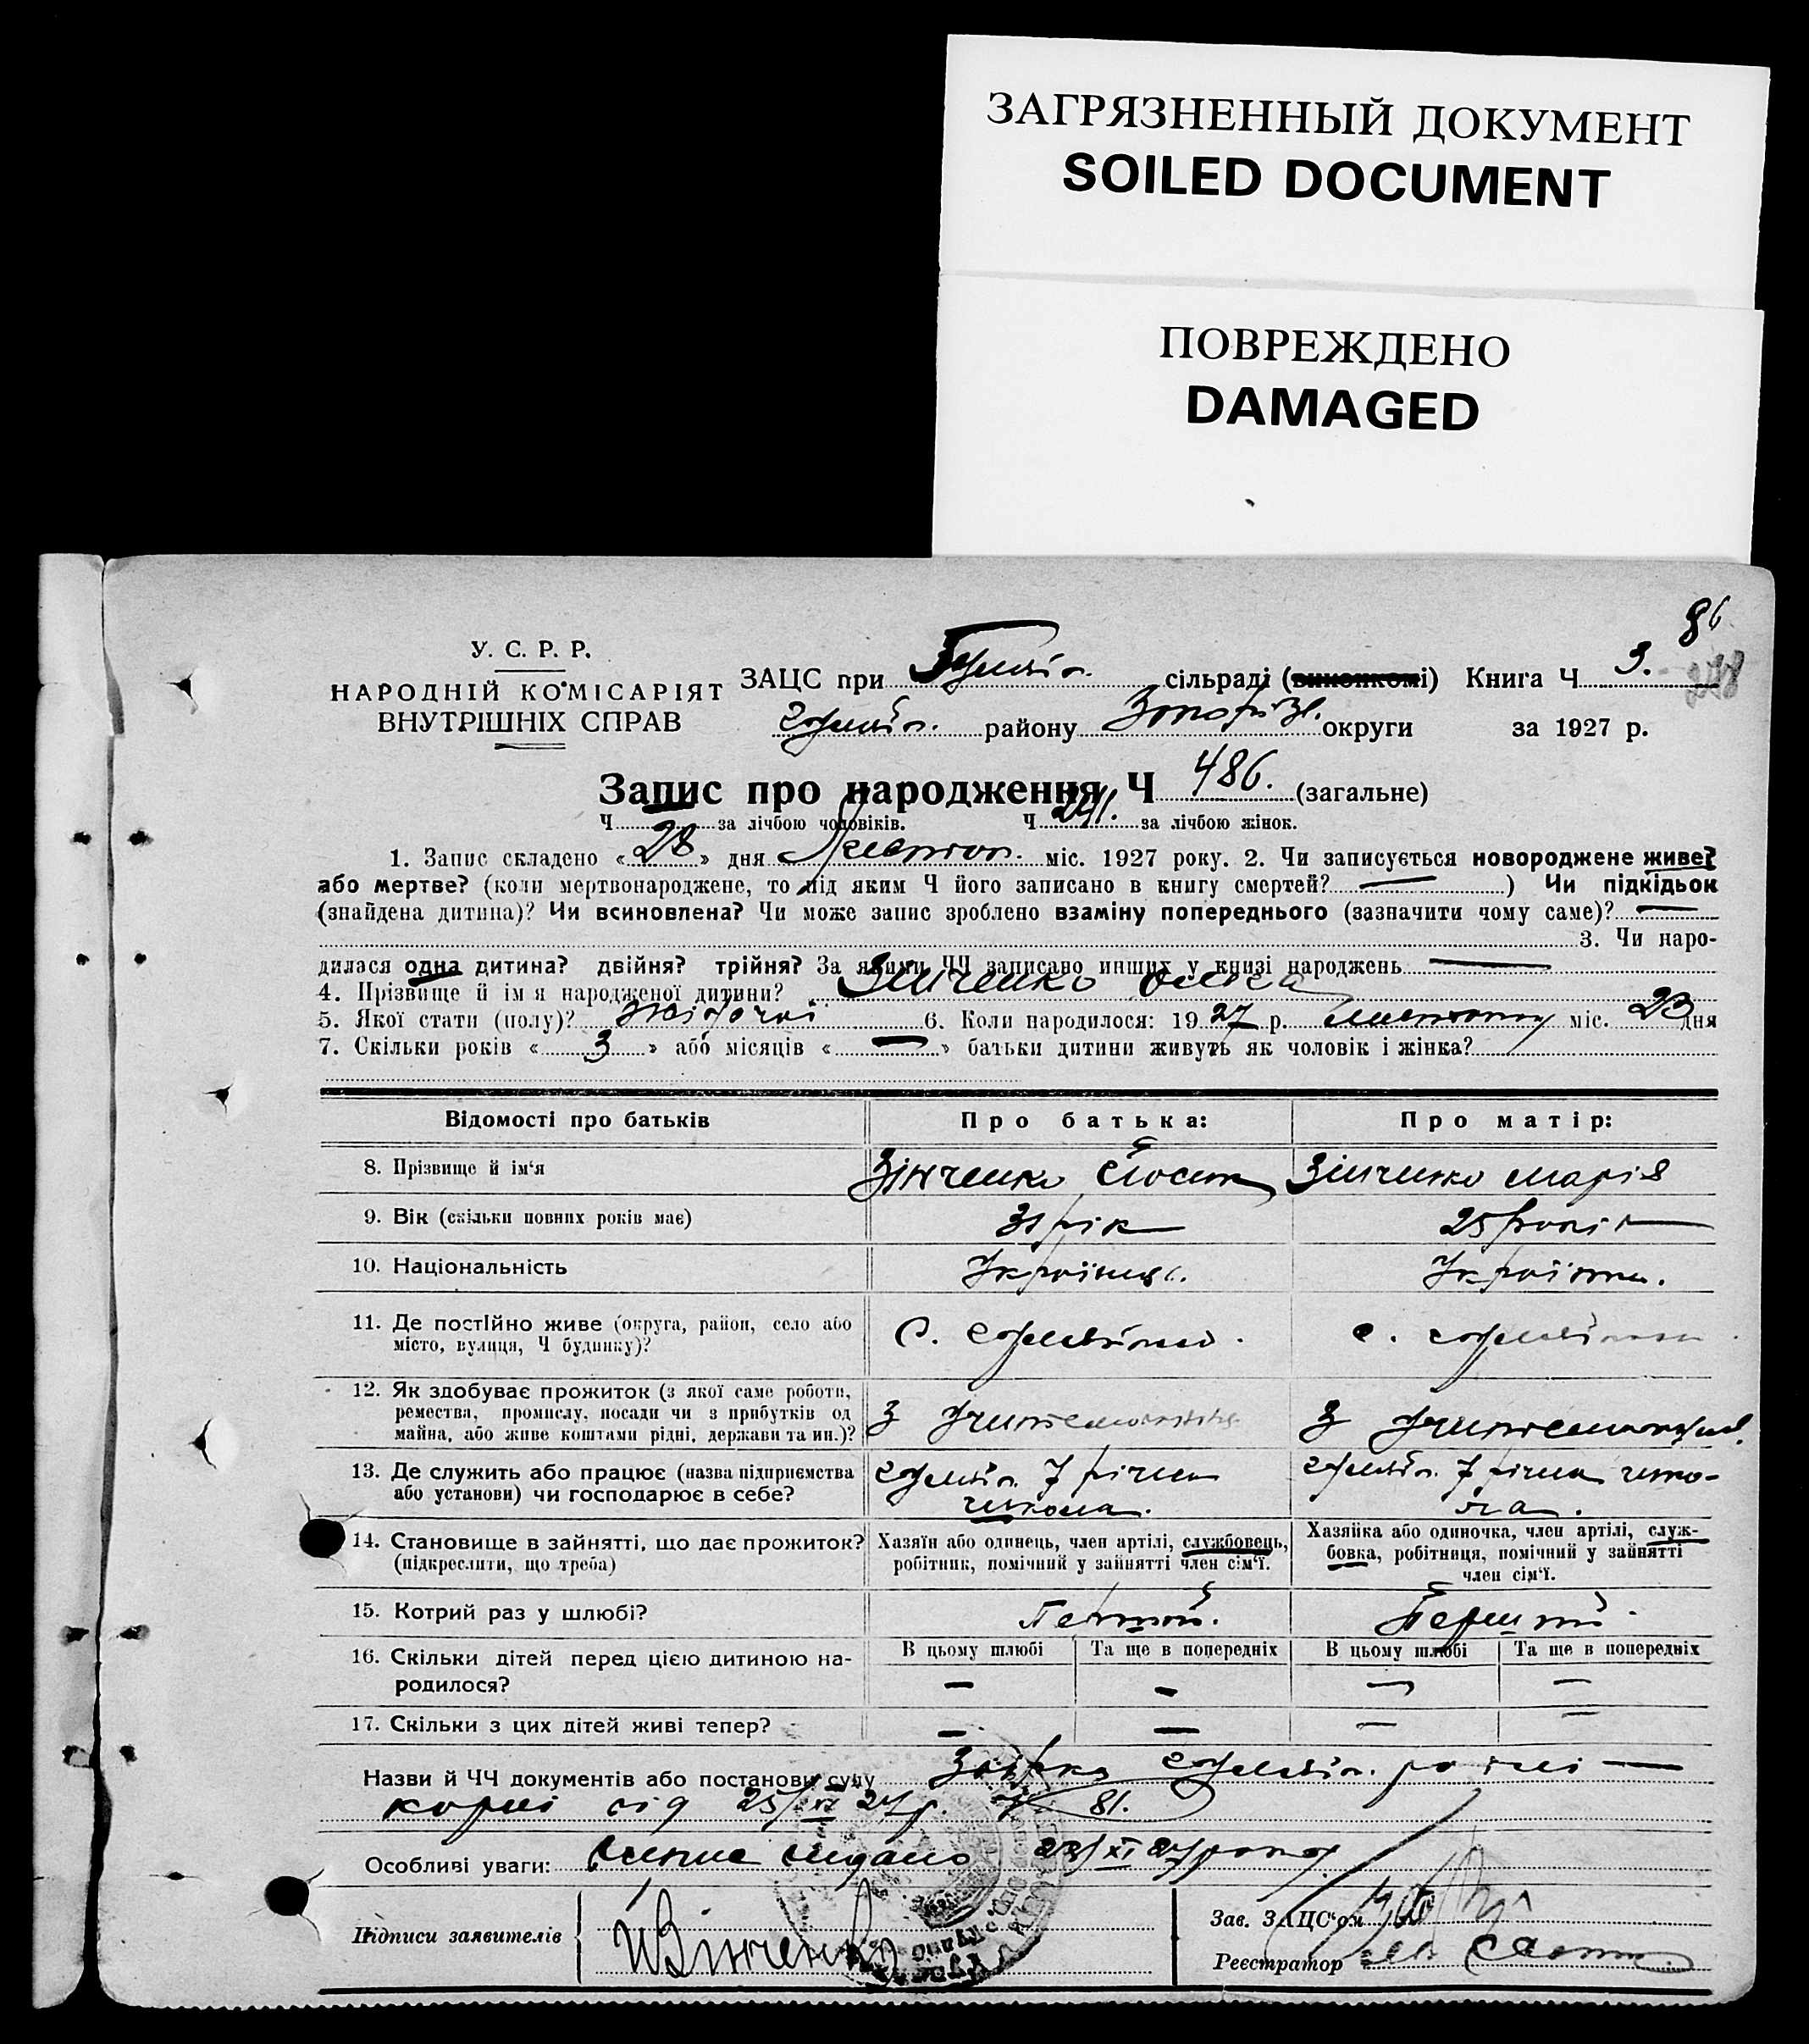 ЗАГРЯЗНЕННЫЙ ДОКУМЕНТ
SOILED DOCUMENT
ПОВРЕЖДЕНО
DAMAGED
86
У. С. Р. Р.
НАРОДНІЙ КОМІСАРІЯТ
ВНУТРІШНІХ СПРАВ
ЗАЦС при сільраді (виконкомі) Книга Ч 3.
району округи за 1927 р.
Запис про народження Ч 486. (загальне)
Ч за лічбою чоловіків. Ч 241. за лічбою жінок.
1. Запис складено « 28 » дня міс. 1927 року. 2. Чи записується новороджене живе?
або мертве? (коли мертвонароджене, то під яким Ч його записано в книгу смертей? — ) Чи підкідьок
(знайдена дитина)? Чи всиновлена? Чи може запис зроблено взаміну попереднього (зазначити чому саме)? —
3. Чи наро-
дилася одна дитина? двійня? трійня? За якими ЧЧ записано инших у книзі народжень —
4. Прізвище й ім'я народженої дитини? Зінченко
5. Якої стати (полу)? жіночої 6. Коли народилося: 19 27 р. міс. 23 дня
7. Скільки років « 3 » або місяців « — » батьки дитини живуть як чоловік і жінка?
Відомості про батьків Про батька: Про матір:
8. Прізвище й ім'я Зінченко Йосип Зінченко Марія
9. Вік (скільки повних років має) 31 рік 25 років
10. Національність Українець. Українка.
11. Де постійно живе (округа, район, село або
місто, вулиця, Ч будинку)? С. с.
12. Як здобуває прожиток (з якої саме роботи,
ремества, промислу, посади чи з прибутків од
майна, або живе коштами рідні, держави та ин.)? З З
13. Де служить або працює (назва підприємства
або установи) чи господарює в себе? 7 річна школа. 7 річна шко-
ла.
14. Становище в зайнятті, що дає прожиток?
(підкреслити, що треба)
Хазяїн або одинець, член артілі, службовець,
робітник, помічний у зайнятті член сім'ї.
Хазяйка або одиночка, член артілі, служ-
бовка, робітниця, помічний у зайнятті
член сім'ї.
15. Котрий раз у шлюбі? Першій. Перший.
16. Скільки дітей перед цією дитиною на-
родилося?
В цьому шлюбі Та ще в попередніх В цьому шлюбі Та ще в попередніх
— — — —
17. Скільки з цих дітей живі тепер? — — — —
Назви й ЧЧ документів або постанови суду
від 25/XI 27 р. 81.
Особливі уваги: видано 28/XI 27 року
Підписи заявителів Й Зінченко
Зав. ЗАЦС'ом
Реєстратор